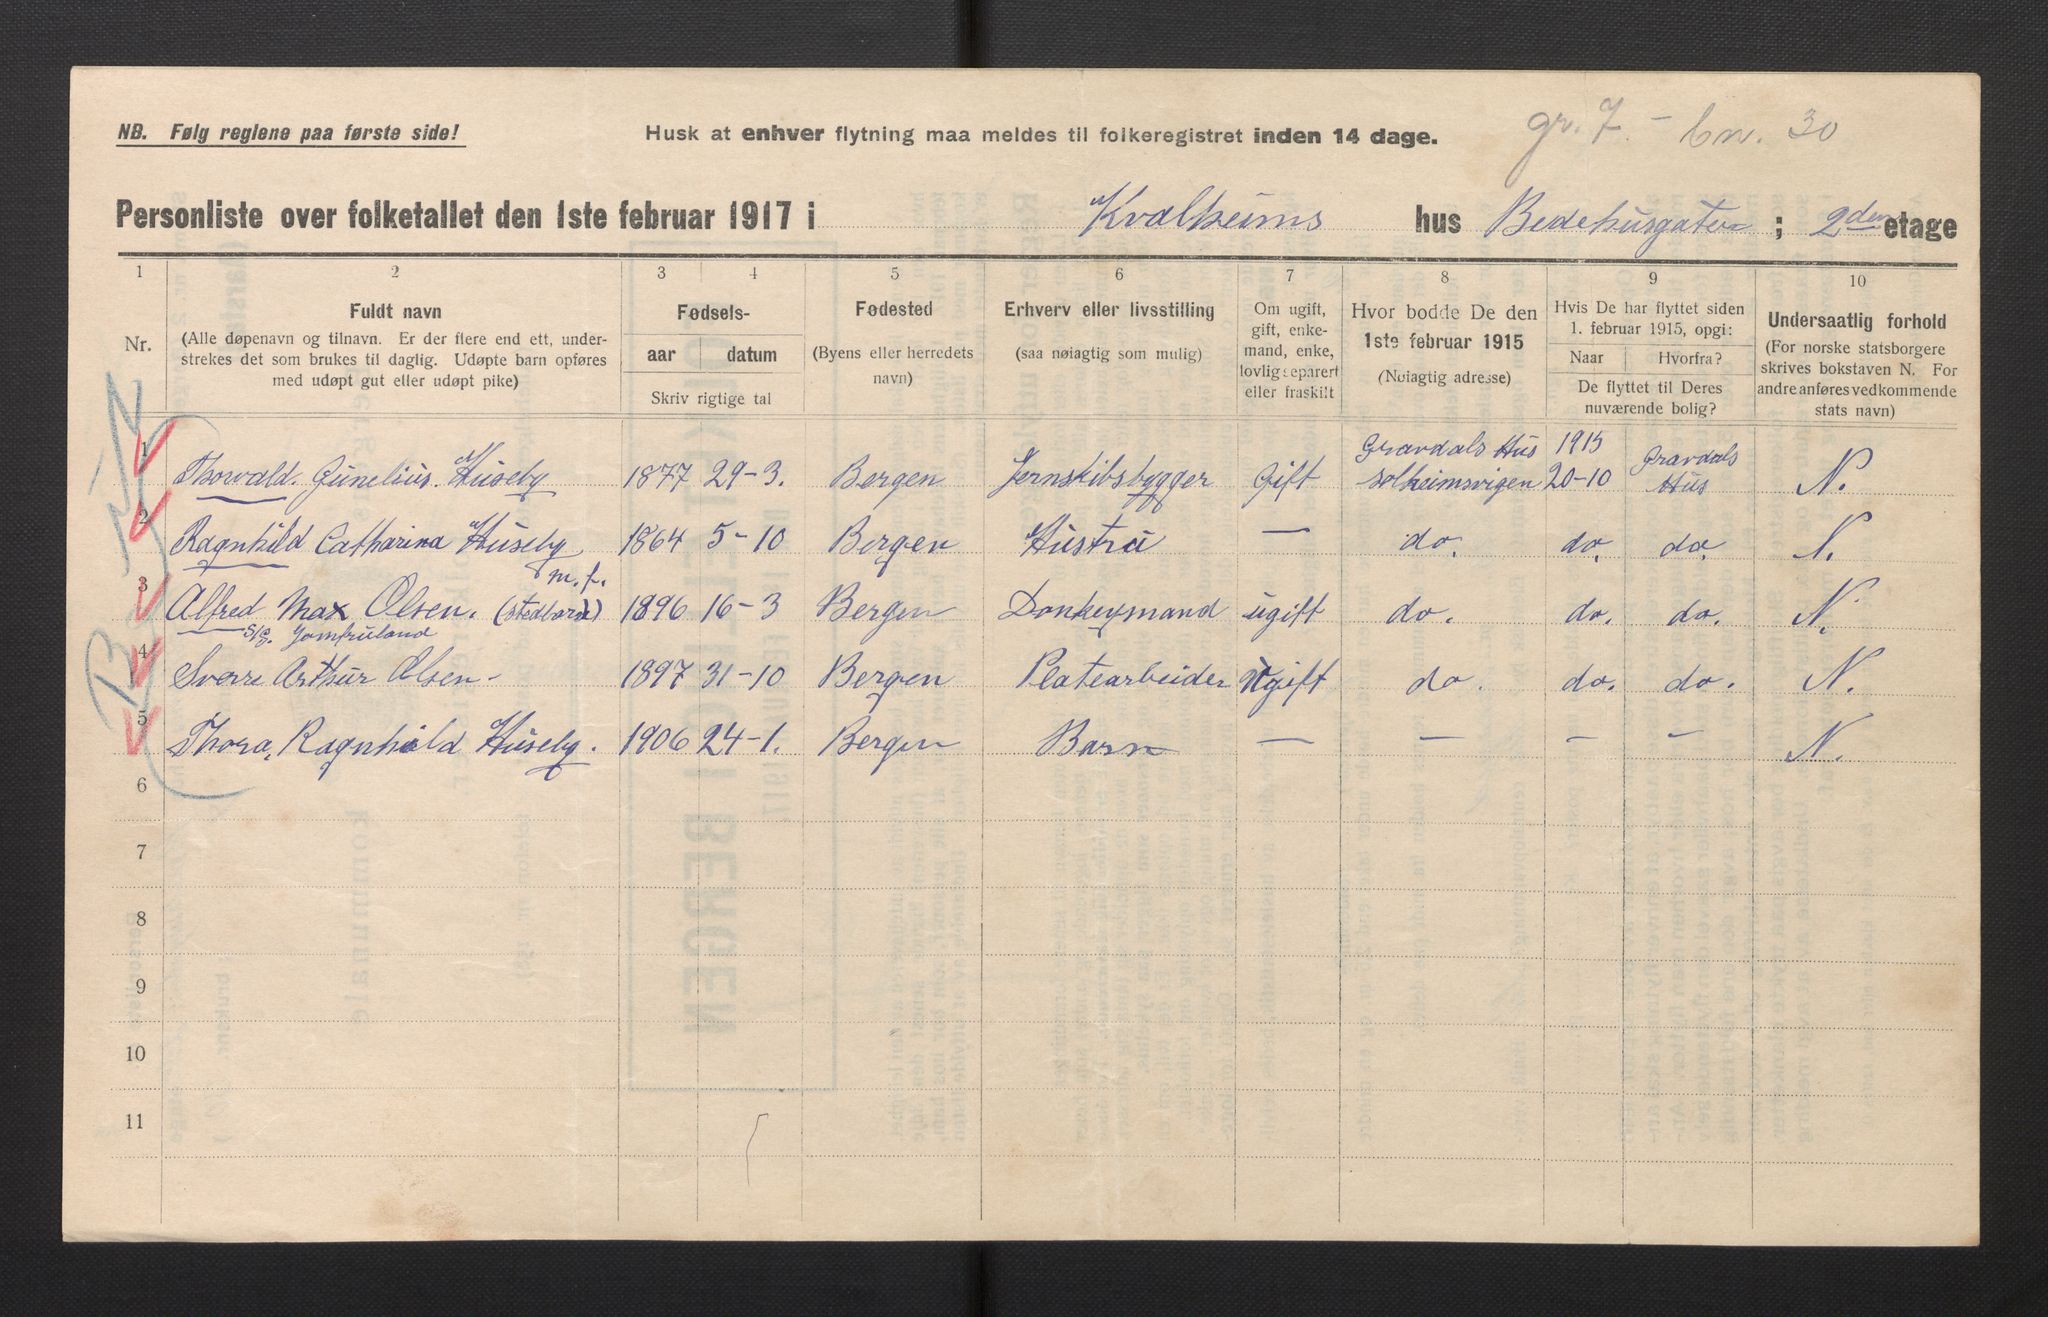 NB. Følg reglene paa første side!
Husk at enhver flytning maa meldes til folkeregistret inden 14 dage.
gr. 7. – bn. 30
Personliste over folketallet den 1ste februar 1917 i Kvalheims hus Bedehusgaten ; 2den etage
1 2 3 4 5 6 7 8 9 10
Nr.
Fuldt navn
(Alle døpenavn og tilnavn. Er der flere end ett, under-
strekes det som brukes til daglig. Udøpte barn opføres
med udøpt gut eller udøpt pike)
Fødsels-
aar datum
Skriv rigtige tal
Fødested
(Byens eller herredets
navn)
Erhverv eller livsstilling
(saa nøiagtig som mulig)
Om ugift,
gift, enke-
mand, enke,
lovlig separert
eller fraskilt
Hvor bodde De den
1ste februar 1915
(Nøiagtig adresse)
Hvis De har flyttet siden
1. februar 1915, opgi:
Naar Hvorfra?
De flyttet til Deres
nuværende bolig?
Undersaatlig forhold
(For norske statsborgere
skrives bokstaven N. For
andre anføres vedkommende
stats navn)
1 Thorvald. Gunelius. Huseby 1877 29-3. Bergen Jernskibsbygger Gift Gravdals Hus Solheimsvigen 1915 20-10 Gravdals Hus N.
2 Ragnhild Catharina Huseby 1864 5-10 Bergen Hustru — do. do. do. N.
m. f.
3 Alfred Max Olsen. (stedbarn) 1896 16-3 Bergen Donkeymand ugift do. do. do. N.
S/S. Jomfruland
4 Sverre Arthur Olsen - 1897 31-10 Bergen Platearbeider Ugift do. do. do. N.
5 Thora, Ragnhild Huseby. 1906 24-1. Bergen Barn — — — — N.
6
7
8
9
10
11